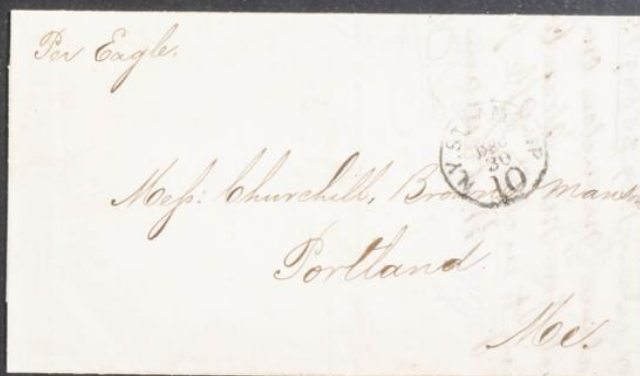 Per Eagle.
N.Y. STEAMSHIP
DEC
30
10
Mess: Churchill, Browns Manson
Portland
Me.